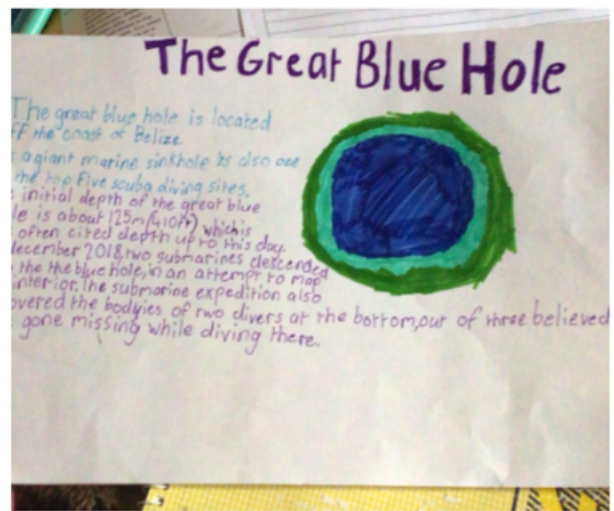 The Great Blue Hole
The great blue hole is located
ff the coast of Belize.
a giant marine sinkhole its also one
the top five scuba diving sites.
initial depth of the great blue
le is about 125m(410ft) which is
often cited depth up to this day.
december 2018, two submarines descended
the the blue hole, in an attempt to map
interior. The submarine expedition also
overed the bodyies of two divers at the bottom, out of three believed
gone missing while diving there.